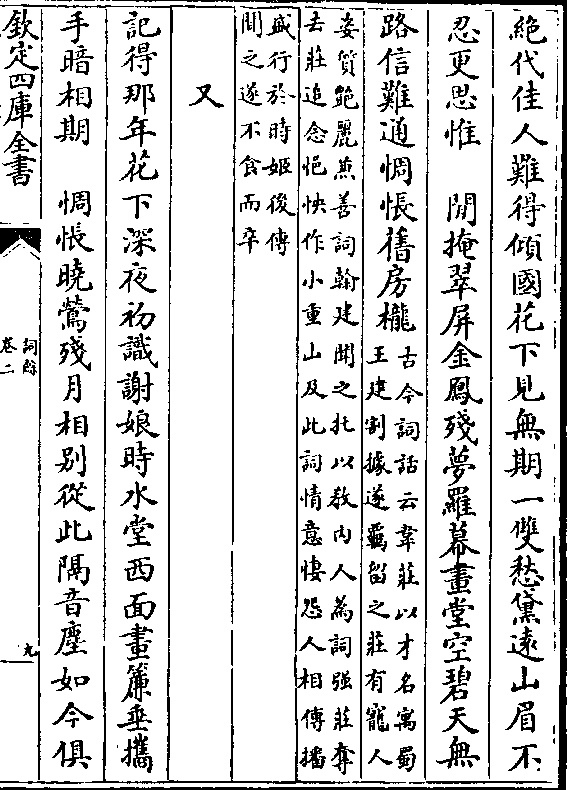 絶代佳人難得傾國花下見無期一雙愁黛遠山眉不
忍更思惟　閒掩翠屏金鳳殘夢羅幕畫堂空碧天無
路信難通惆悵舊房櫳
古今詞話云韋莊以才名寓蜀
王建割據遂羈留之莊有寵人
姿質艶麗兼善詞翰建聞之托以教内人為詞强莊奪
去莊追念悒怏作小重山及此詞情意悽怨人相傳播
盛行於時姬後傳
聞之遂不食而卒
又
記得那年花下深夜初識謝娘時水堂西面畫簾垂攜
手暗相期　惆悵曉鶯殘月相别從此隔音塵如今俱
欽定四庫全書
詞綜
卷二
九